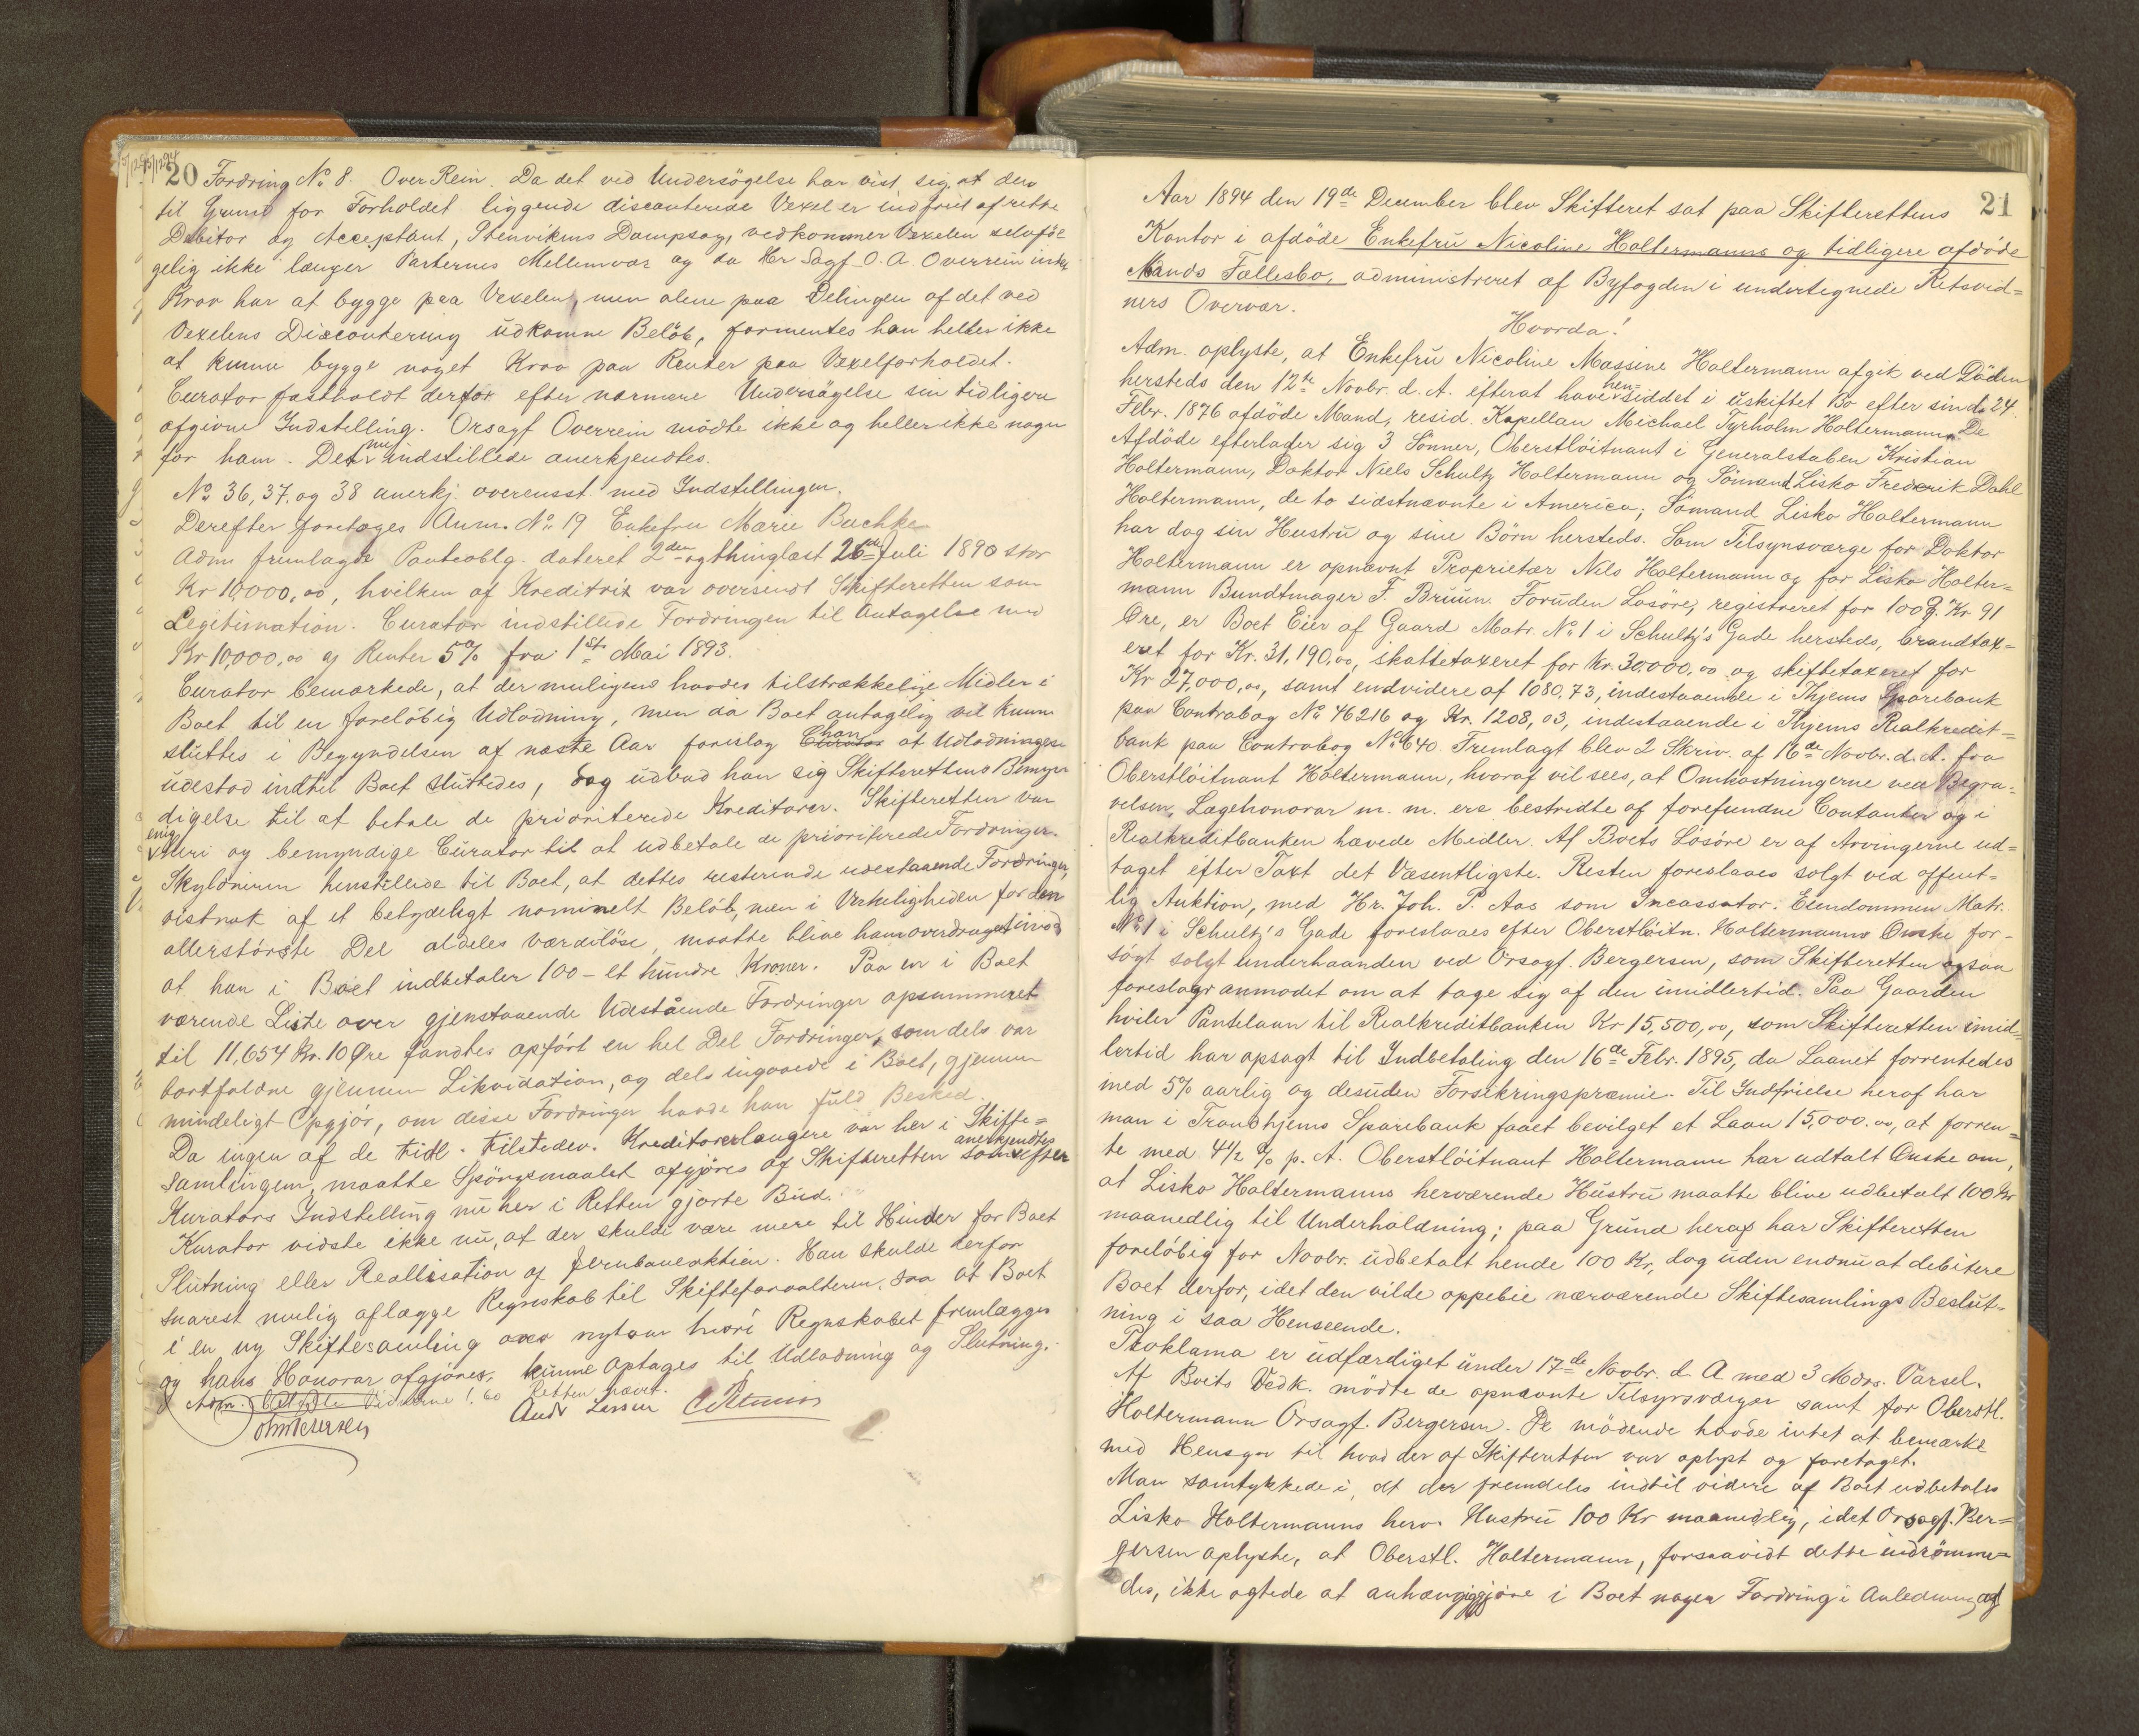 20 Fordring No 8. Over Rein. Da det ved Undersögelse har vist sig, at den
til Grund for Forholdet liggende discouterede Vexel er indfriet af rette
Debitor og Acceptant, Stenvikens Dampsag, vedkommer Vexelen selvföl
gelig ikke længer Parternes Mellemvær og da Hr Sagf. O. A. Overrein intet
Krav har at bygge paa Vexelen, men alene paa Delingen af det ved
Vexelens Discontering udkomne Belöb, formentes han heller ikke
at kunne bygge noget Krav paa Renter paa Vexelforholdet.
Curator fastholdt derfor efter nærmere Undersögelse sin tidligere
afgivne Indstilling. Orsagf Overrein mödte ikke og heller ikke nogen
for ham. Det nu indstillede anerkjendtes.
No 36, 37. og 38 anerkj. overensst. med Indstillingen.
Derefter foretages Anm. No 19 Enkefru Marie Bachke
Adm fremlagde Panteoblg. dateret 2den og thinglæst 26de Juli 1890 stor
Kr 10,000,00, hvilken af Kreditrix var oversendt Skifteretten som
Legitimation. Curator indstillede Fordringen til Antagelse med
Kr 10,000,00 og Renter 5% fra 1ste Mai 1893.
Curator bemærkede, at der muligens havdes tilstrækkelige Midler i
Boet til en foreløbig Udlodning, men da Boet antagelig vil kunne
sluttes i Begyndelsen af næste Aar foreslog Curator han at Udlodningen
udestod indtil Boet sluttedes, dog udbad han sig Skifterettens Bemyn
digelse til at betale de prioriterede Kreditorer. Skifteretten var
enig heri og bemyndige Curator til at udbetale de prioriterede Fordringer.
Skyldneren henstillede til Boet, at dettes resterende udestaaende Fordringer,
vistnok af et betydeligt nominelt Belöb, men i Virkeligheden for den
allerstörste Del aldeles værdilöse, maatte blive ham overdraget imod
at han i Boet indbetaler 100 - et hundre Kroner. Paa en i Boet
værende Liste over gjenstaaende Udestående Fordringer opsummeret
til 11,654 Kr. 10 Øre fandtes opfört en hel Del Fordringer, som dels var
bortfaldne gjennem Likvidation, og dels ingaaede i Boet, gjennem
mindeligt Opgjör, om desse Fordringer havde han fuld Besked.
Da ingen af de tidl. tilstedev. Kreditorer længere var her i Skifte=
samlingen, maatte Spörgsmaalet afgjöres af Skifteretten som anerkjendtes efter
Kurators Indstilling nu her i Retten gjorte Bud.
Kurator vidste ikke nu, at der skulde være mere til Hinder for Boet
Slutning eller Reallisation af Jernbaneaktien. Han skulde derfor
snarest mulig aflægge Regnskab til Skifteforvalteren, saa at Boet
i en ny Skiftesamling over nytaar hvori Regnskabet fremlægges
og hans Honorar afgjöres, kunne optages til Udlodning og Slutning.
Adm. betalte Vidnerne 1.60 Retten hævet.
Andr Larsen
21
Aar 1894 den 19de December blev Skifteret sat paa Skifterettens
Kontor i afdöde Enkefru Nicoline Holtermanns og tidligere afdöde
Mands Fællesbo, administreret af Byfogden i undertegnede Retsvid=
ners Overvær.
Hvorda!
Adm. oplyste, at Enkefru Nicoline Massine Holtermann afgik ved Döden
hersteds den 12te Novbr. d. A. efterat have hen=siddet i uskiftet Bo efter sin d. 24.
Febr. 1876 afdöde Mand, resid. Kapellan Michael Tyrholm Holtermann. De
Afdöde efterlader sig 3 Sönner, Oberstlöitnant i Generalstaben Kristian
Holtermann, Doktor Niels Schultz Holtermann og Sömand Lisko Frederik Dahl
Holtermann, de to sidstnævnte i America; Sömand Lisko Holtermann
har dog sin Hustru og sine Börn hersteds. Som Tilsynsværge for Doktor
Holtermann er opnævnt Proprietær Nils Holtermann og for Lisko Holter=
mann Bundtmager F. Bruun. Foruden Lösöre, registreret for 1008. Kr. 91
Øre, er Boet Eier af Gaard Matr. No 1 i Schultz's Gade hersteds, brandtax=
eret for Kr. 31,190,00, skattetaxeret for Kr. 30,000,00 og skiftetaxeret for
Kr 27,000,00, samt endvidere af 1080.73, indestaaende i Thjems Sparebank
paa Contrabog No 46216 og Kr. 1208,03, indestaaende i Thjems Realkredit=
bank paa Contrabog No 640. Fremlagt blev 2 Skriv. af 16de Novbr. d. A. fra
Oberstlöitnant Holtermann, hvoraf vil sees, at Omkostningerne ved Begra=
velsen, Lægehonorar m. m. ere bestridte af forefundne Contanter og i
Realkreditbanken hævede Midler. Af Boets Lösöre er af Arvingerne ud=
taget efter Taxt det Væsentligste. Resten foreslaaes solgt ved offent=
lig Auktion, med Hr. Joh. P. Aas som Incassator. Eiendommen Matr.
No 1 i Schultz's Gade foreslaaes efter Oberstlöitn. Holtermanns Önske for-
sögt solgt underhaanden ved Orsagf. Bergersen, som Skifteretten ogsaa
foreslogr anmodet om at tage sig af den imidlertid. Paa Gaarden
hviler Pantelaan til Realkreditbanken Kr 15,500,00, som Skifteretten imid=
lertid har opsagt til Indbetaling den 16de Febr. 1895, da Laanet forrentedes
med 5% aarlig og desuden Forsikringspræmie. Til Indfrielse heraf har
man i Trondhjems Sparebank faaet bevilget et Laan 15,000.00, at forren=
te med 4½ % p. A. Oberstlöitnant Holtermann har udtalt Önske om,
at Lisko Holtermanns herværende Hustru maatte blive udbetalt 100 Kr
maanedlig til Underholdning; paa Grund heraf har Skifteretten
foreløbig for Novbr. udbetalt hende 100 Kr, dog uden endnu at debitere
Boet derfor, idet den vilde oppebie nærværende Skiftesamlings Beslut=
ning i saa Henseende.
Proklama er udfærdiget under 17de Novbr. d. A med 3 Mdrs. Varsel.
Af Boets Vedk. mödte de opnævnte Tilsynsværger samt for Oberstl.
Holtermann Orsagf. Bergersen. De mödende havde intet at bemærke
med Hensyn til hvad der af Skifteretten var oplyst og foretaget.
Man samtykkede i, at der fremdeles indtil videre af Boet udbetales
Lisko Holtermanns herv. Hustru 100 Kr maanedlig, idet Orsagf. Ber=
gersen oplyste, at Oberstl. Holtermann, forsaavidt dette indrömme=
des, ikke agtede at anhængiggjöre i Boet nogen Fordring i Anledning af